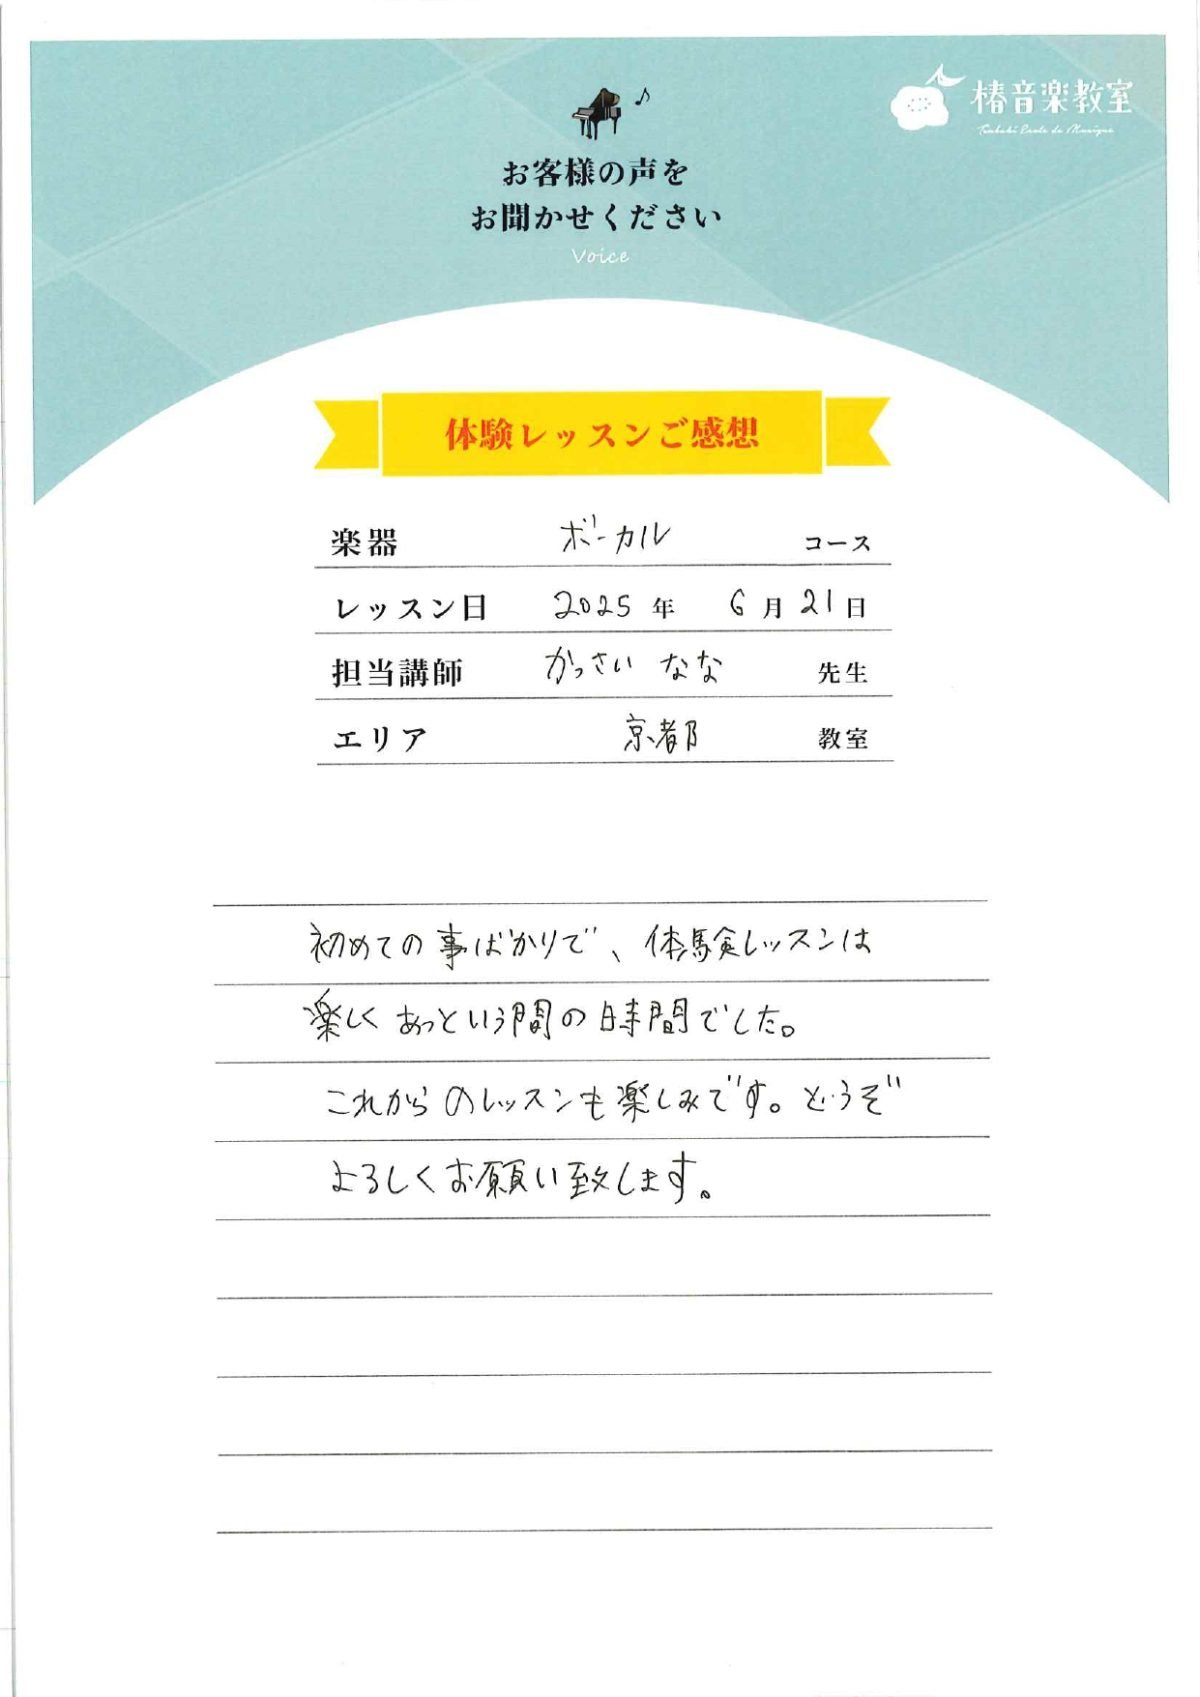 椿音楽教室
Tsubaki Ecole de Musique
お客様の声を
お聞かせください
Voice
体験レッスンご感想
楽器 ボーカル コース
レッスン日 2025 年 6 月 21 日
担当講師 かっさい なな 先生
エリア 京都 教室
初めての事ばかりで、体験レッスンは
楽しくあっという間の時間でした。
これからのレッスンも楽しみです。どうぞ
よろしくお願い致します。